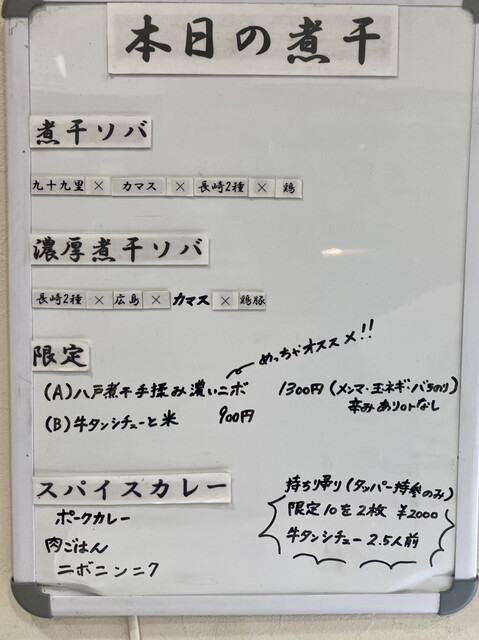 本日の煮干
煮干ソバ
九十九里 × カマス × 長崎2種 × 鶏
濃厚煮干ソバ
長崎2種 × 広島 × カマス × 鶏豚
限定
めっちゃオススメ!!
(A) 八戸煮干手揉み濃いニボ 1300円 (メンマ・玉ネギ・バラのり)
辛みありorなし
(B) 牛タンシチューと米 900円
スパイスカレー
ポークカレー
肉ごはん
ニボニンニク
持ち帰り (タッパー持参のみ)
限定10を2枚 ¥2000
牛タンシチュー 2.5人前